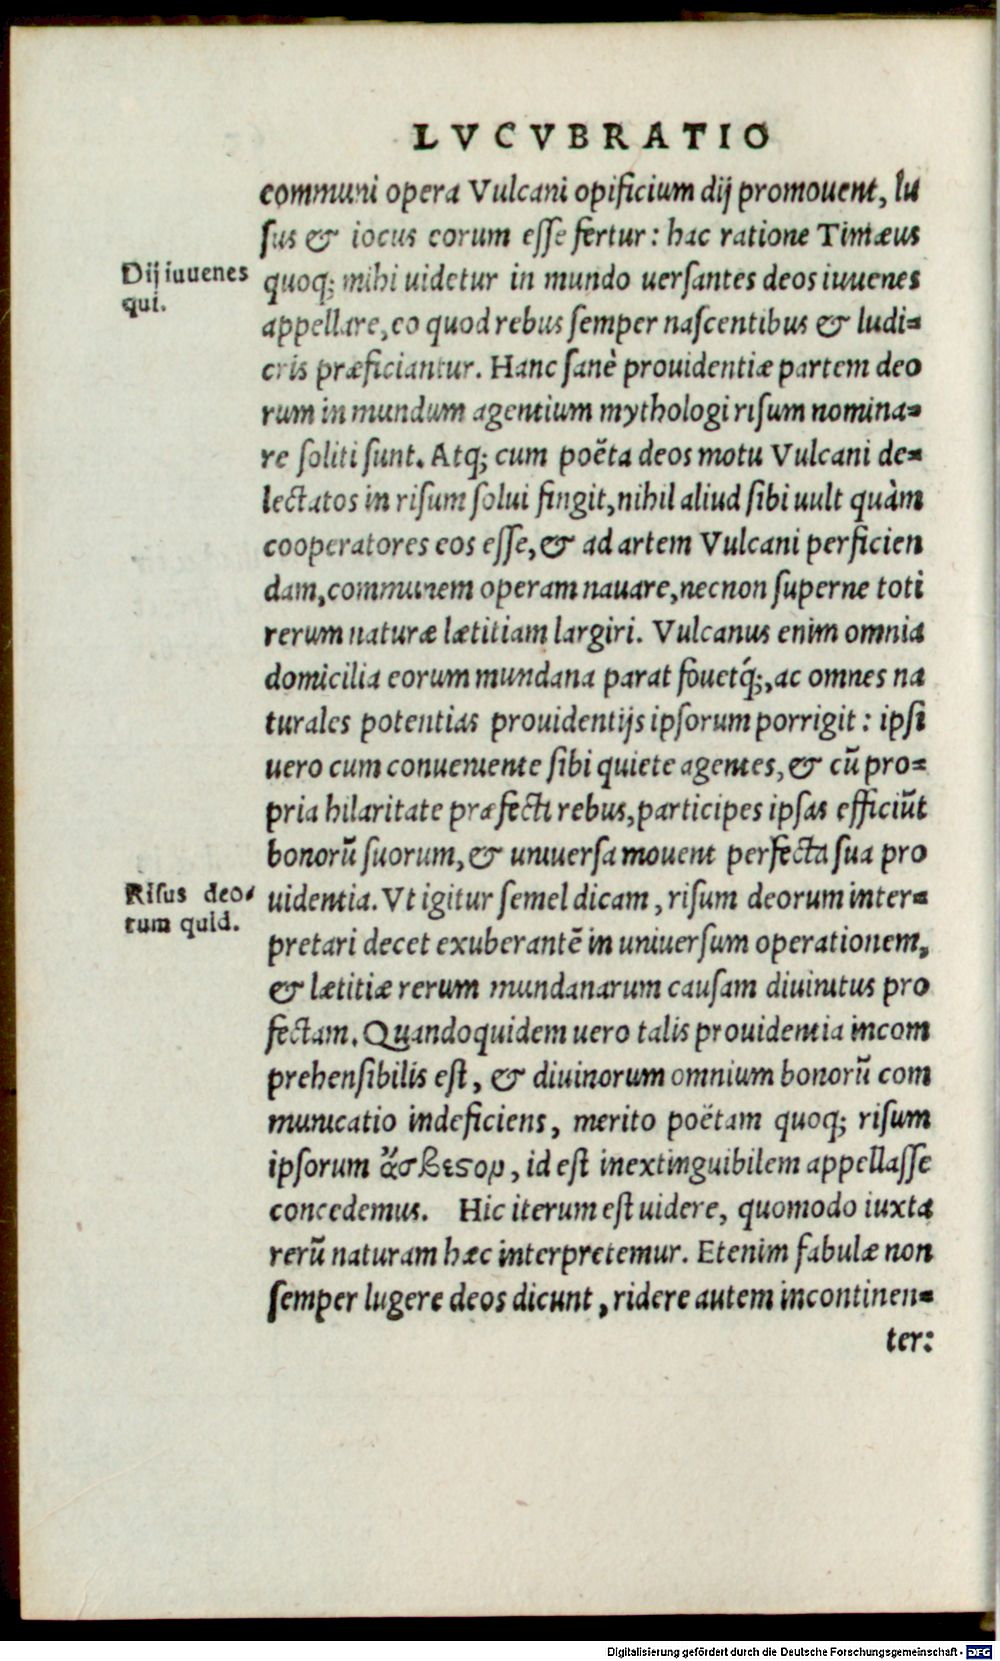 LVCVBRATIO
communi opera Vulcani opificium dij promouent, lu
sus & iocus eorum esse fertur: hac ratione Timæus
Dij iuuenes
qui.
quoq; mihi uidetur in mundo uersantes deos iuuenes
appellare, eo quod rebus semper nascentibus & ludi=
cris præficiantur. Hanc sanè prouidentiæ partem deo
rum in mundum agentium mythologi risum nomina=
re soliti sunt. Atq; cum poëta deos motu Vulcani de=
lectatos in risum solui fingit, nihil aliud sibi uult quàm
cooperatores eos esse, & ad artem Vulcani perficien
dam, communem operam nauare, necnon superne toti
rerum naturæ lætitiam largiri. Vulcanus enim omnia
domicilia eorum mundana parat fouetq́;, ac omnes na
turales potentias prouidentijs ipsorum porrigit: ipsi
uero cum conueniente sibi quiete agentes, & cũ pro=
pria hilaritate præfecti rebus, participes ipsas efficiũt
bonorũ suorum, & uniuersa mouent perfecta sua pro
Risus deo-
rum quid.
uidentia. Vt igitur semel dicam, risum deorum inter=
pretari decet exuberantẽ in uniuersum operationem,
& lætitiæ rerum mundanarum causam diuinitus pro
fectam. Quandoquidem uero talis prouidentia incom
prehensibilis est, & diuinorum omnium bonorũ com
municatio indeficiens, merito poëtam quoq; risum
ipsorum ἄσβεςον, id est inextinguibilem appellasse
concedemus. Hic iterum est uidere, quomodo iuxta
rerũ naturam hæc interpretemur. Etenim fabulæ non
semper lugere deos dicunt, ridere autem incontinen=
ter:
Digitalisierung gefördert durch die Deutsche Forschungsgemeinschaft - DFG